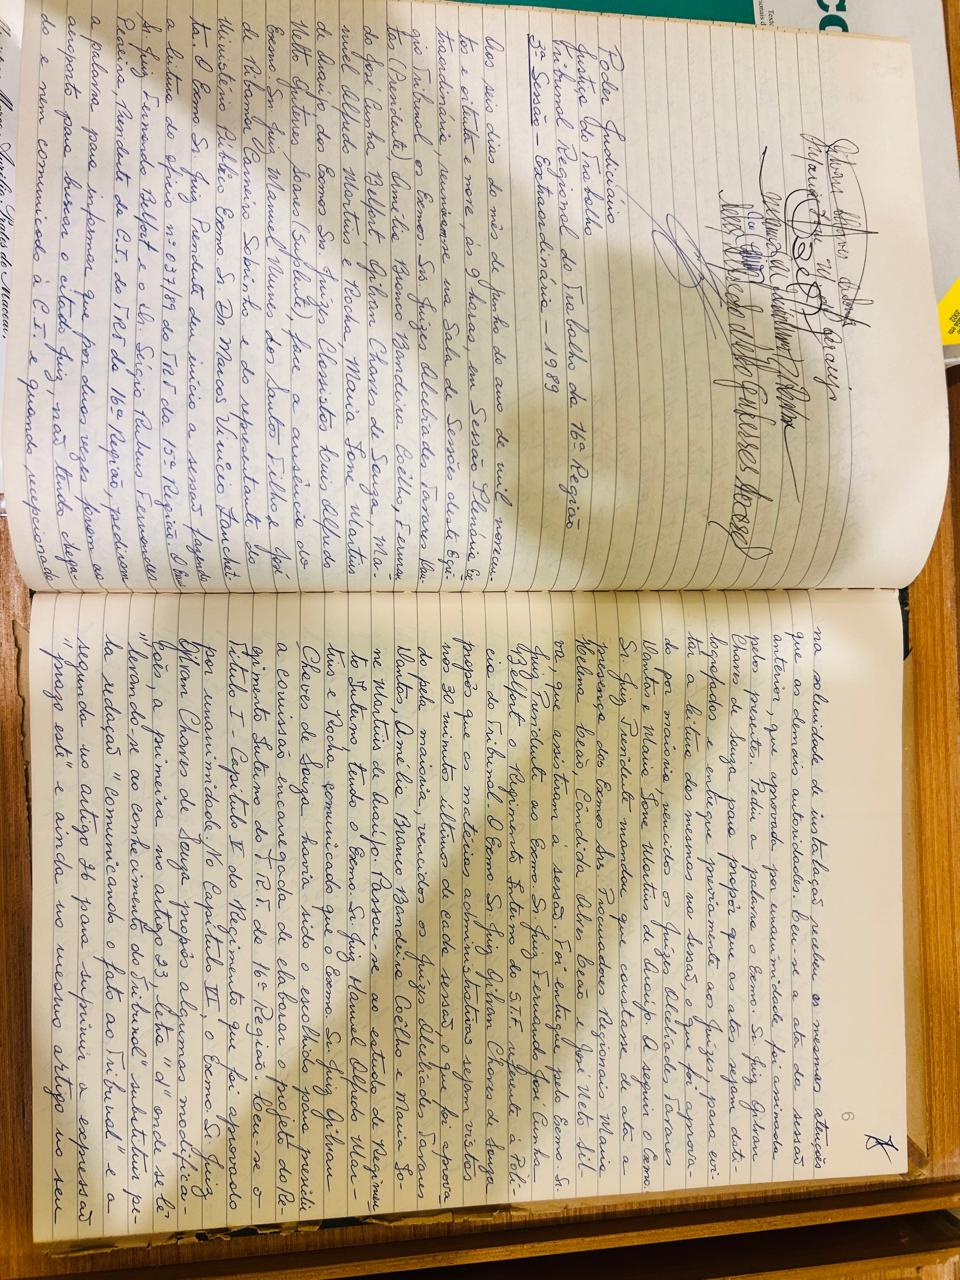 Poder Judiciário
Justiça do Trabalho
Tribunal Regional do Trabalho da 16ª Região
3ª Sessão - Extraordinária - 1989
Aos seis dias do mês de junho do ano de mil novecen-
tos e oitenta e nove, às 9 horas, em Sessão Plenária Ex
traordinária, reuniram-se na Sala de Sessões deste Egré-
gio Tribunal os Exmos. Srs. Juízes Alcebíades Tavares Dan-
tas (Presidente), Amélia Branco Bandeira Coêlho, Fernan
do José Cunha Belfort, Gilvan Chaves de Souza, Ma-
nuel Alfredo Martins e Rocha, Maria José Martins
de Araújo do Exmos Sr. Juízes Clossitos Luis Alfredo
Netto Guterres Soares (Suplente), face a ausência do
Exmo. Sr. Juiz Manuel Nunes dos Santos Filho e José
de Ribamar Carneiro Sobrinho e do representante do
Ministério Público Exmo Sr. Dr. Marcos Vinício Zanchet-
ta. O Exmo Sr. Juiz Presidente deu início a sessão fazendo
a leitura do ofício nº 037/89 do TRT da 15ª Região. O Exmo
Sr. Juiz Fernando Belfort e o Dr. Sérgio Rubens Fernandes
Pereira, Presidente da C.I. do TRT da 16ª Região, pediram
a palavra para informar que por duas vezes foram ao
aeroporto para buscar o citado Juiz, não tendo chega-
do e nem comunicado à C.I. e quando recepcionado
6
na solenidade de instalação recebeu as mesmas atenções
que as demais autoridades. Leu-se a ata da sessão
anterior, que aprovada por unanimidade foi assinada
pelos presentes. Pediu a palavra o Exmo. Sr. Juiz Gilvan
Chaves de Souza para propôr que as atas sejam dati-
lografadas e entregue previamente aos Juízes, para evi-
tar a leitura das mesmas na sessão, o que foi aprova-
do por maioria, vencidos os Juízes Alcebíades Tavares
Dantas e Maria José Martins de Araújo. A seguir o Exmo.
Sr. Juiz Presidente mandou que constasse de ata a
presença dos Exmos Srs Procuradores Regionais Maria
Helena Leão, Candida Alves Leão e José Neto Sil
va, que assistiram à sessão. Foi entregue pelo Exmo. Sr.
Juiz Presidente ao Exmo. Sr. Juiz Fernando José Cunha
Belfort o Regimento Interno do S.T.F. referente à Polí-
cia do Tribunal. O Exmo. Sr. Juiz Gilvan Chaves de Souza
propôs que as matérias administrativas sejam vistas
nos 30 minutos últimos de cada sessão, o que foi aprova
do pela maioria, vencidos os Juízes Alcebíades Tavares
Dantas, Amélia Branco Bandeira Coêlho e Maria Jo-
sé Martins de Araújo. Passou-se ao estudo do Regimen
to Interno tendo o Exmo. Sr. Juiz Manuel Alfredo Mar-
tins e Rocha comunicado que o Exmo. Sr. Juiz Gilvan
Chaves de Souza havia sido o escolhido para presidir
a comissão encarregada de elaborar o projeto do Re-
gimento Interno do TRT da 16ª Região. Leu-se o
Título I - Capítulo II do Regimento que foi aprovado
por unanimidade. No Capítulo III, o Exmo. Sr. Juiz
Gilvan Chaves de Souza propôs algumas modifica-
ções, a primeira no artigo 23, letra "d" onde se lê:
"levando-se ao conhecimento do Tribunal" substituir pe-
la redação "comunicando o fato ao Tribunal" e a
segunda no artigo 26 para suprimir a expressão
"prazo este" e ainda no mesmo artigo no seu